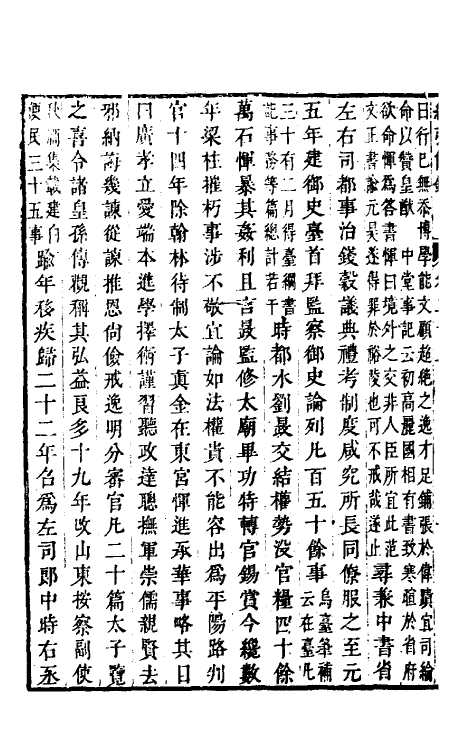 曰行己無忝博學能文顧超絶之逸才足鋪張於偉蹟宜司綸
命以贊皇猷　中堂事記云初高麗國相有書致寒暄於省府
欲命惲爲答書惲曰境外之交非人臣所宜此范
文正書諭元昊遂得罪於裕陵也可不戒哉遂止
尋兼中書省
左右司都事治錢穀議典禮考制度咸究所長同僚服之至元
五年建御史臺首拜監察御史論列凡百五十餘事
烏臺筆補
云在臺凡
三十有二月得臺綱書
記事務等篇總計若干
時都水劉晸交結權勢没官糧四十餘
萬石惲暴其姦利且言晸監修太廟畢功特轉官錫賞今纔數
年梁柱摧朽事涉不敬宜論如法權貴不能容出爲平陽路判
官十四年除翰林待制太子眞金在東宮惲進承華事略其目
曰廣孝立愛端本進學擇術謹習聽政達聰撫軍崇儒親賢去
邪納誨幾諫從諫推恩尙儉戒逸明分審官凡二十篇太子覽
之喜令諸皇孫傳觀稱其弘益良多十九年改山東按察副使
秋澗集載建白
便民三十五事
踰年移疾歸二十二年召爲左司郎中時右丞